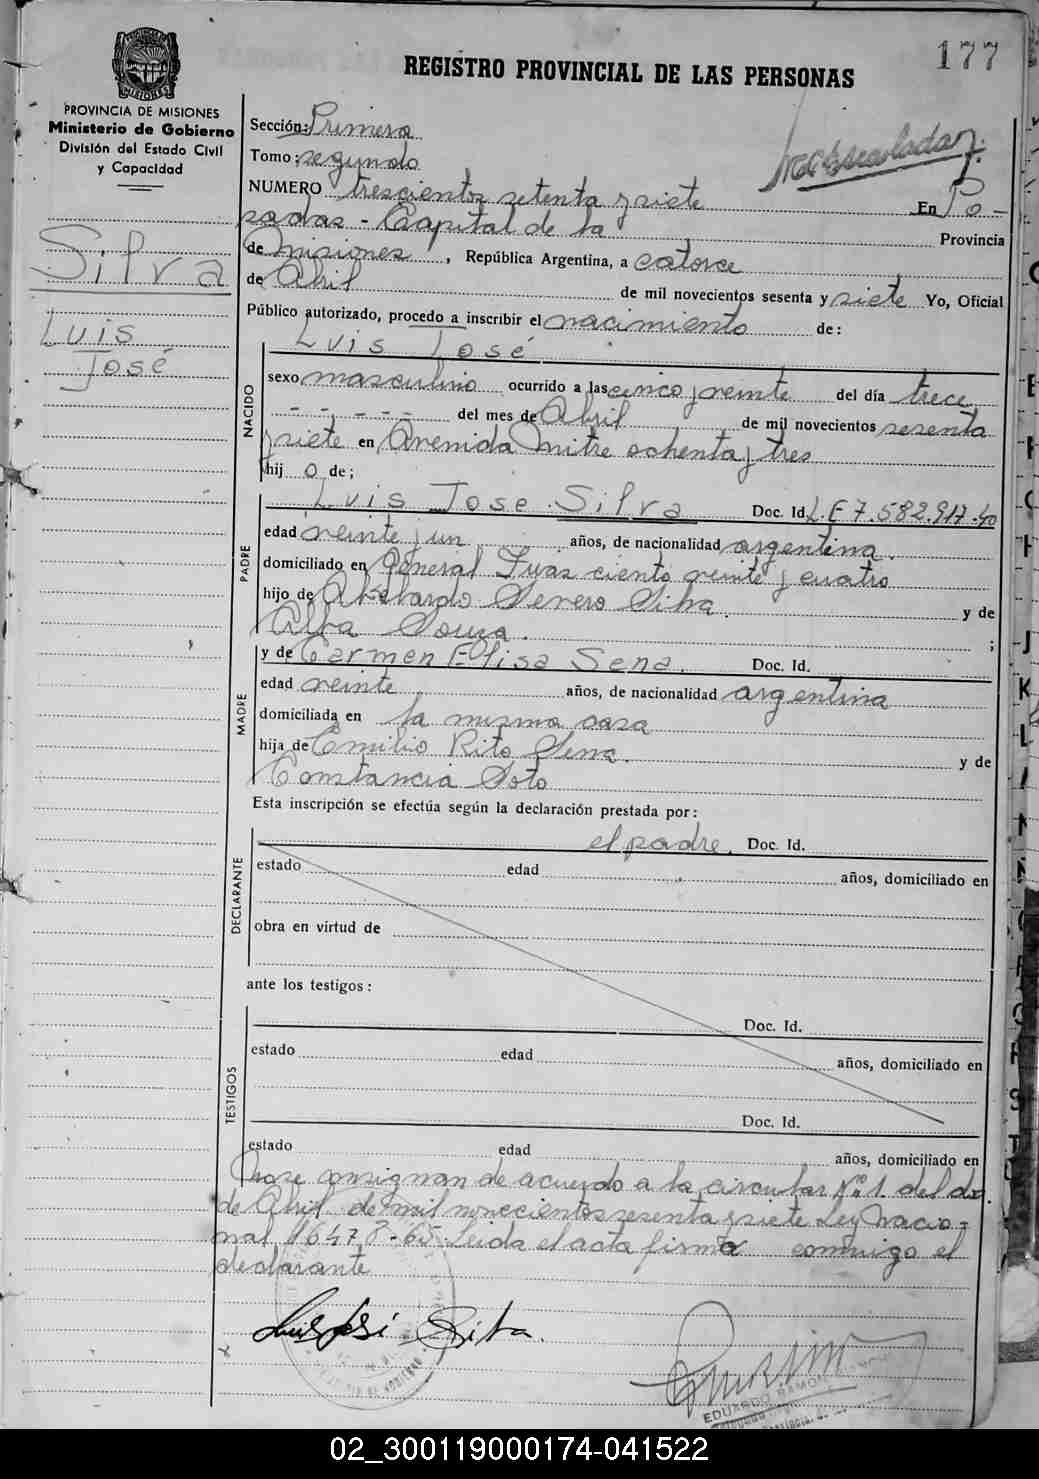 177
REGISTRO PROVINCIAL DE LAS PERSONAS
PROVINCIA DE MISIONES
Ministerio de Gobierno
División del Estado Civil
y Capacidad
Silva
Luis
José
Sección: Primera
Tomo: segundo
NUMERO trescientos setenta y siete En Po-
sadas - Capital de la Provincia
de Misiones, República Argentina, a catorce
de Abril de mil novecientos sesenta y siete Yo, Oficial
Público autorizado, procedo a inscribir el nacimiento de:
Luis José
NACIDO
sexo masculino ocurrido a las cinco y veinte del día trece
- - - - - del mes de Abril de mil novecientos sesenta
y siete en Avenida Mitre ochenta y tres
hij o de;
PADRE
Luis Jose Silva Doc. Id. L.E 7.582.917.40
edad veinte y un años, de nacionalidad argentina.
domiciliado en General ciento veinte y cuatro
hijo de Abelardo Severo Silva. y de
Alba Souza. ;
MADRE
y de Carmen Elisa Sena. Doc. Id.
edad veinte años, de nacionalidad argentina
domiciliada en la misma casa
hija de Emilio Rito Sena. y de
Constancia Soto
Esta inscripción se efectúa según la declaración prestada por:
DECLARANTE
el padre. Doc. Id.
estado edad años, domiciliado en
obra en virtud de
ante los testigos:
TESTIGOS
Doc. Id.
estado edad años, domiciliado en
Doc. Id.
estado edad años, domiciliado en
No se consignan de acuerdo a la circular Nº 1 del
de Abril de mil novecientos sesenta y siete Ley Nacio-
nal 16478-65 Leida el acta firma conmigo el
declarante
Luis José Silva.
EDUARDO RAMON
02_300119000174-041522